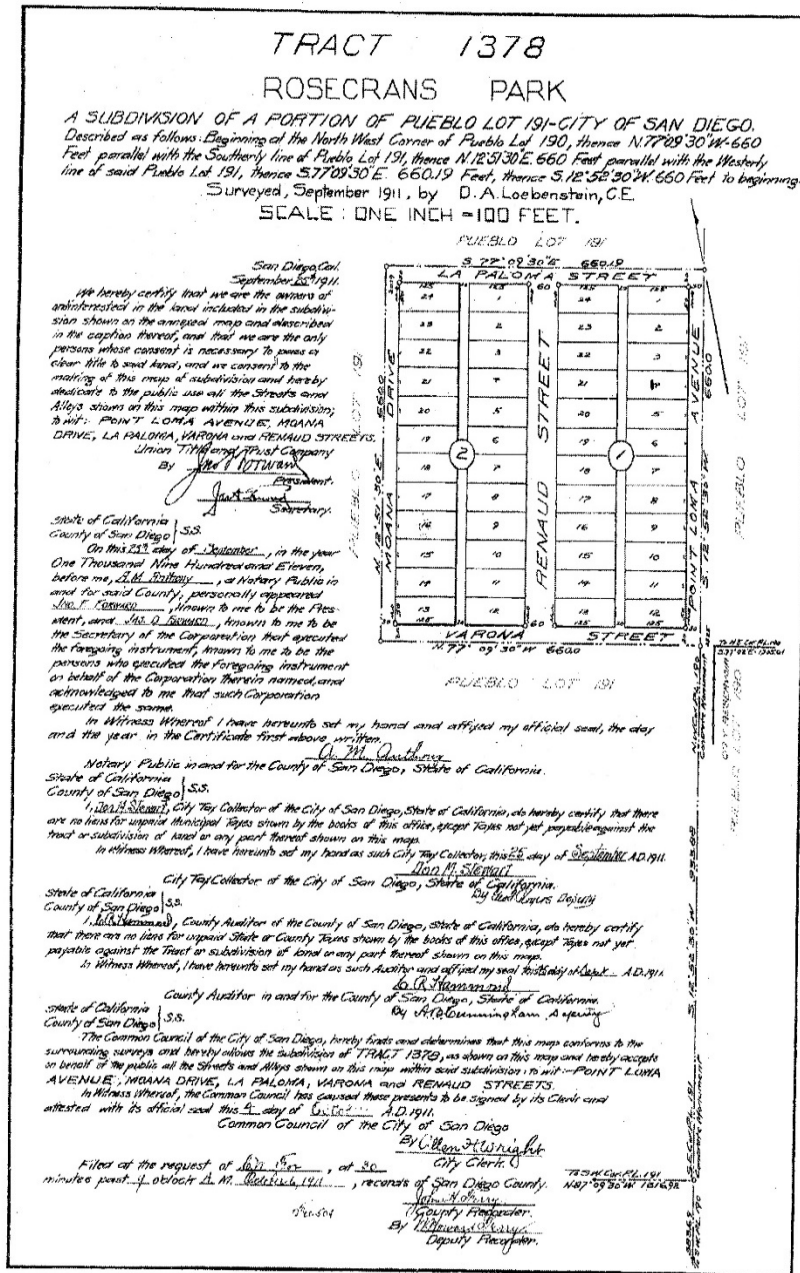 TRACT 1378
ROSECRANS PARK
A SUBDIVISION OF A PORTION OF PUEBLO LOT 191-CITY OF SAN DIEGO.
Described as follows: Beginning at the North West Corner of Pueblo Lot 190, thence N.77°09'30"W-660
Feet parallel with the Southerly line of Pueblo Lot 191, thence N.12°51'30"E. 660 Feet parallel with the Westerly
line of said Pueblo Lot 191, thence S.77°09'30"E. 660.19 Feet, thence S.12°52'30"W. 660 Feet to beginning.
Surveyed, September 1911, by D.A. Loebenstein, C.E.
SCALE: ONE INCH = 100 FEET.
San Diego, Cal.
September 25th 1911.
We hereby certify that we are the owners of
and interested in the land included in the subdivi-
sion shown on the annexed map and described
in the caption thereof, and that we are the only
persons whose consent is necessary to pass a
clear title to said land, and we consent to the
making of this map of subdivision and hereby
dedicate to the public use all the Streets and
Alleys shown on this map within this subdivision;
to wit: POINT LOMA AVENUE, MOANA
DRIVE, LA PALOMA, VARONA and RENAUD STREETS.
Union Title and Trust Company
By
President.
Secretary.
State of California
County of San Diego } S.S.
On this 25th day of September, in the year
One Thousand Nine Hundred and Eleven,
before me, A.M. Anthony, a Notary Public in
and for said County, personally appeared
Jno F Forward, known to me to be the Pres-
ident, and Jas. D Forward, known to me to be
the Secretary of the Corporation that executed
the foregoing instrument, known to me to be the
persons who executed the foregoing instrument
on behalf of the Corporation therein named, and
acknowledged to me that such Corporation
executed the same.
In Witness Whereof I have hereunto set my hand and affixed my official seal, the day
and the year in the Certificate first above written.
A. M. Anthony
Notary Public in and for the County of San Diego, State of California.
State of California
County of San Diego } S.S.
I, Don M. Stewart, City Tax Collector of the City of San Diego, State of California, do hereby certify that there
are no liens for unpaid Municipal Taxes shown by the books of this office, except Taxes not yet payable against the
tract or subdivision of land or any part thereof shown on this map.
In Witness Whereof, I have hereunto set my hand as such City Tax Collector, this 25 day of September A.D. 1911.
Don M. Stewart
City Tax Collector of the City of San Diego, State of California.
By Deputy
State of California
County of San Diego } S.S.
I, Hammond, County Auditor of the County of San Diego, State of California, do hereby certify
that there are no liens for unpaid State or County Taxes shown by the books of this office, except Taxes not yet
payable against the Tract or subdivision of land or any part thereof shown on this map.
In Witness Whereof, I have hereunto set my hand as such Auditor and affixed my seal this day of Sept. A.D. 1911.
Hammond
County Auditor in and for the County of San Diego, State of California.
By Cunningham Deputy
State of California
County of San Diego } S.S.
The Common Council of the City of San Diego, hereby finds and determines that this map conforms to the
surrounding surveys and hereby allows the subdivision of TRACT 1378, as shown on this map and hereby accepts
on behalf of the public all the Streets and Alleys shown on this map within said subdivision; to wit:-POINT LOMA
AVENUE, MOANA DRIVE, LA PALOMA, VARONA and RENAUD STREETS.
In Witness Whereof, the Common Council has caused these presents to be signed by its Clerk and
attested with its official seal this 4 day of October A.D. 1911.
Common Council of the City of San Diego
By Allen H. Wright
City Clerk.
Filed at the request of , at 30
minutes past 9 oclock A.M. October 6, 1911, records of San Diego County.
John H. Ferry
County Recorder.
By
Deputy Recorder.
PUEBLO LOT 191
S. 77° 09' 30" E 660.19
LA PALOMA STREET
125 125 60 125 125
24 1 24 1
23 2 23 2
22 3 22 3
21 4 21 4
20 5 20 5
19 6 19 6
2 1
18 7 18 7
17 8 17 8
16 9 16 9
15 10 15 10
14 11 14 11
13 12 13 12
125 125 60 125 125
VARONA STREET
N. 77° 09' 30" W 660.0
MOANA DRIVE
N. 12° 51' 30" E 660.0
PUEBLO LOT 191
RENAUD STREET
POINT LOMA AVENUE
S. 12° 52' 30" W 660.0
PUEBLO LOT 191
PUEBLO LOT 191
PUEBLO LOT 190
S. 12° 52' 30" W
To S.W. Cor. P.L. 191